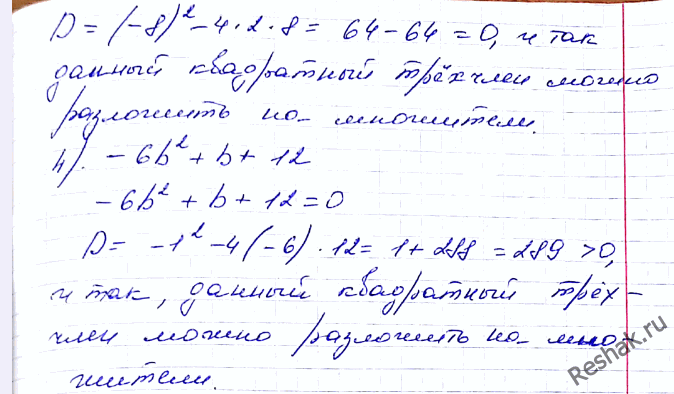 D = (-8)² - 4 · 2 · 8 = 64 - 64 = 0, и так
данный квадратный трёхчлен можно
разложить на множители.
4). -6b² + b + 12
-6b² + b + 12 = 0
D = -1² - 4(-6) · 12 = 1 + 288 = 289 > 0,
и так, данный квадратный трёх-
член можно разложить на мно-
жители.
Reshak.ru